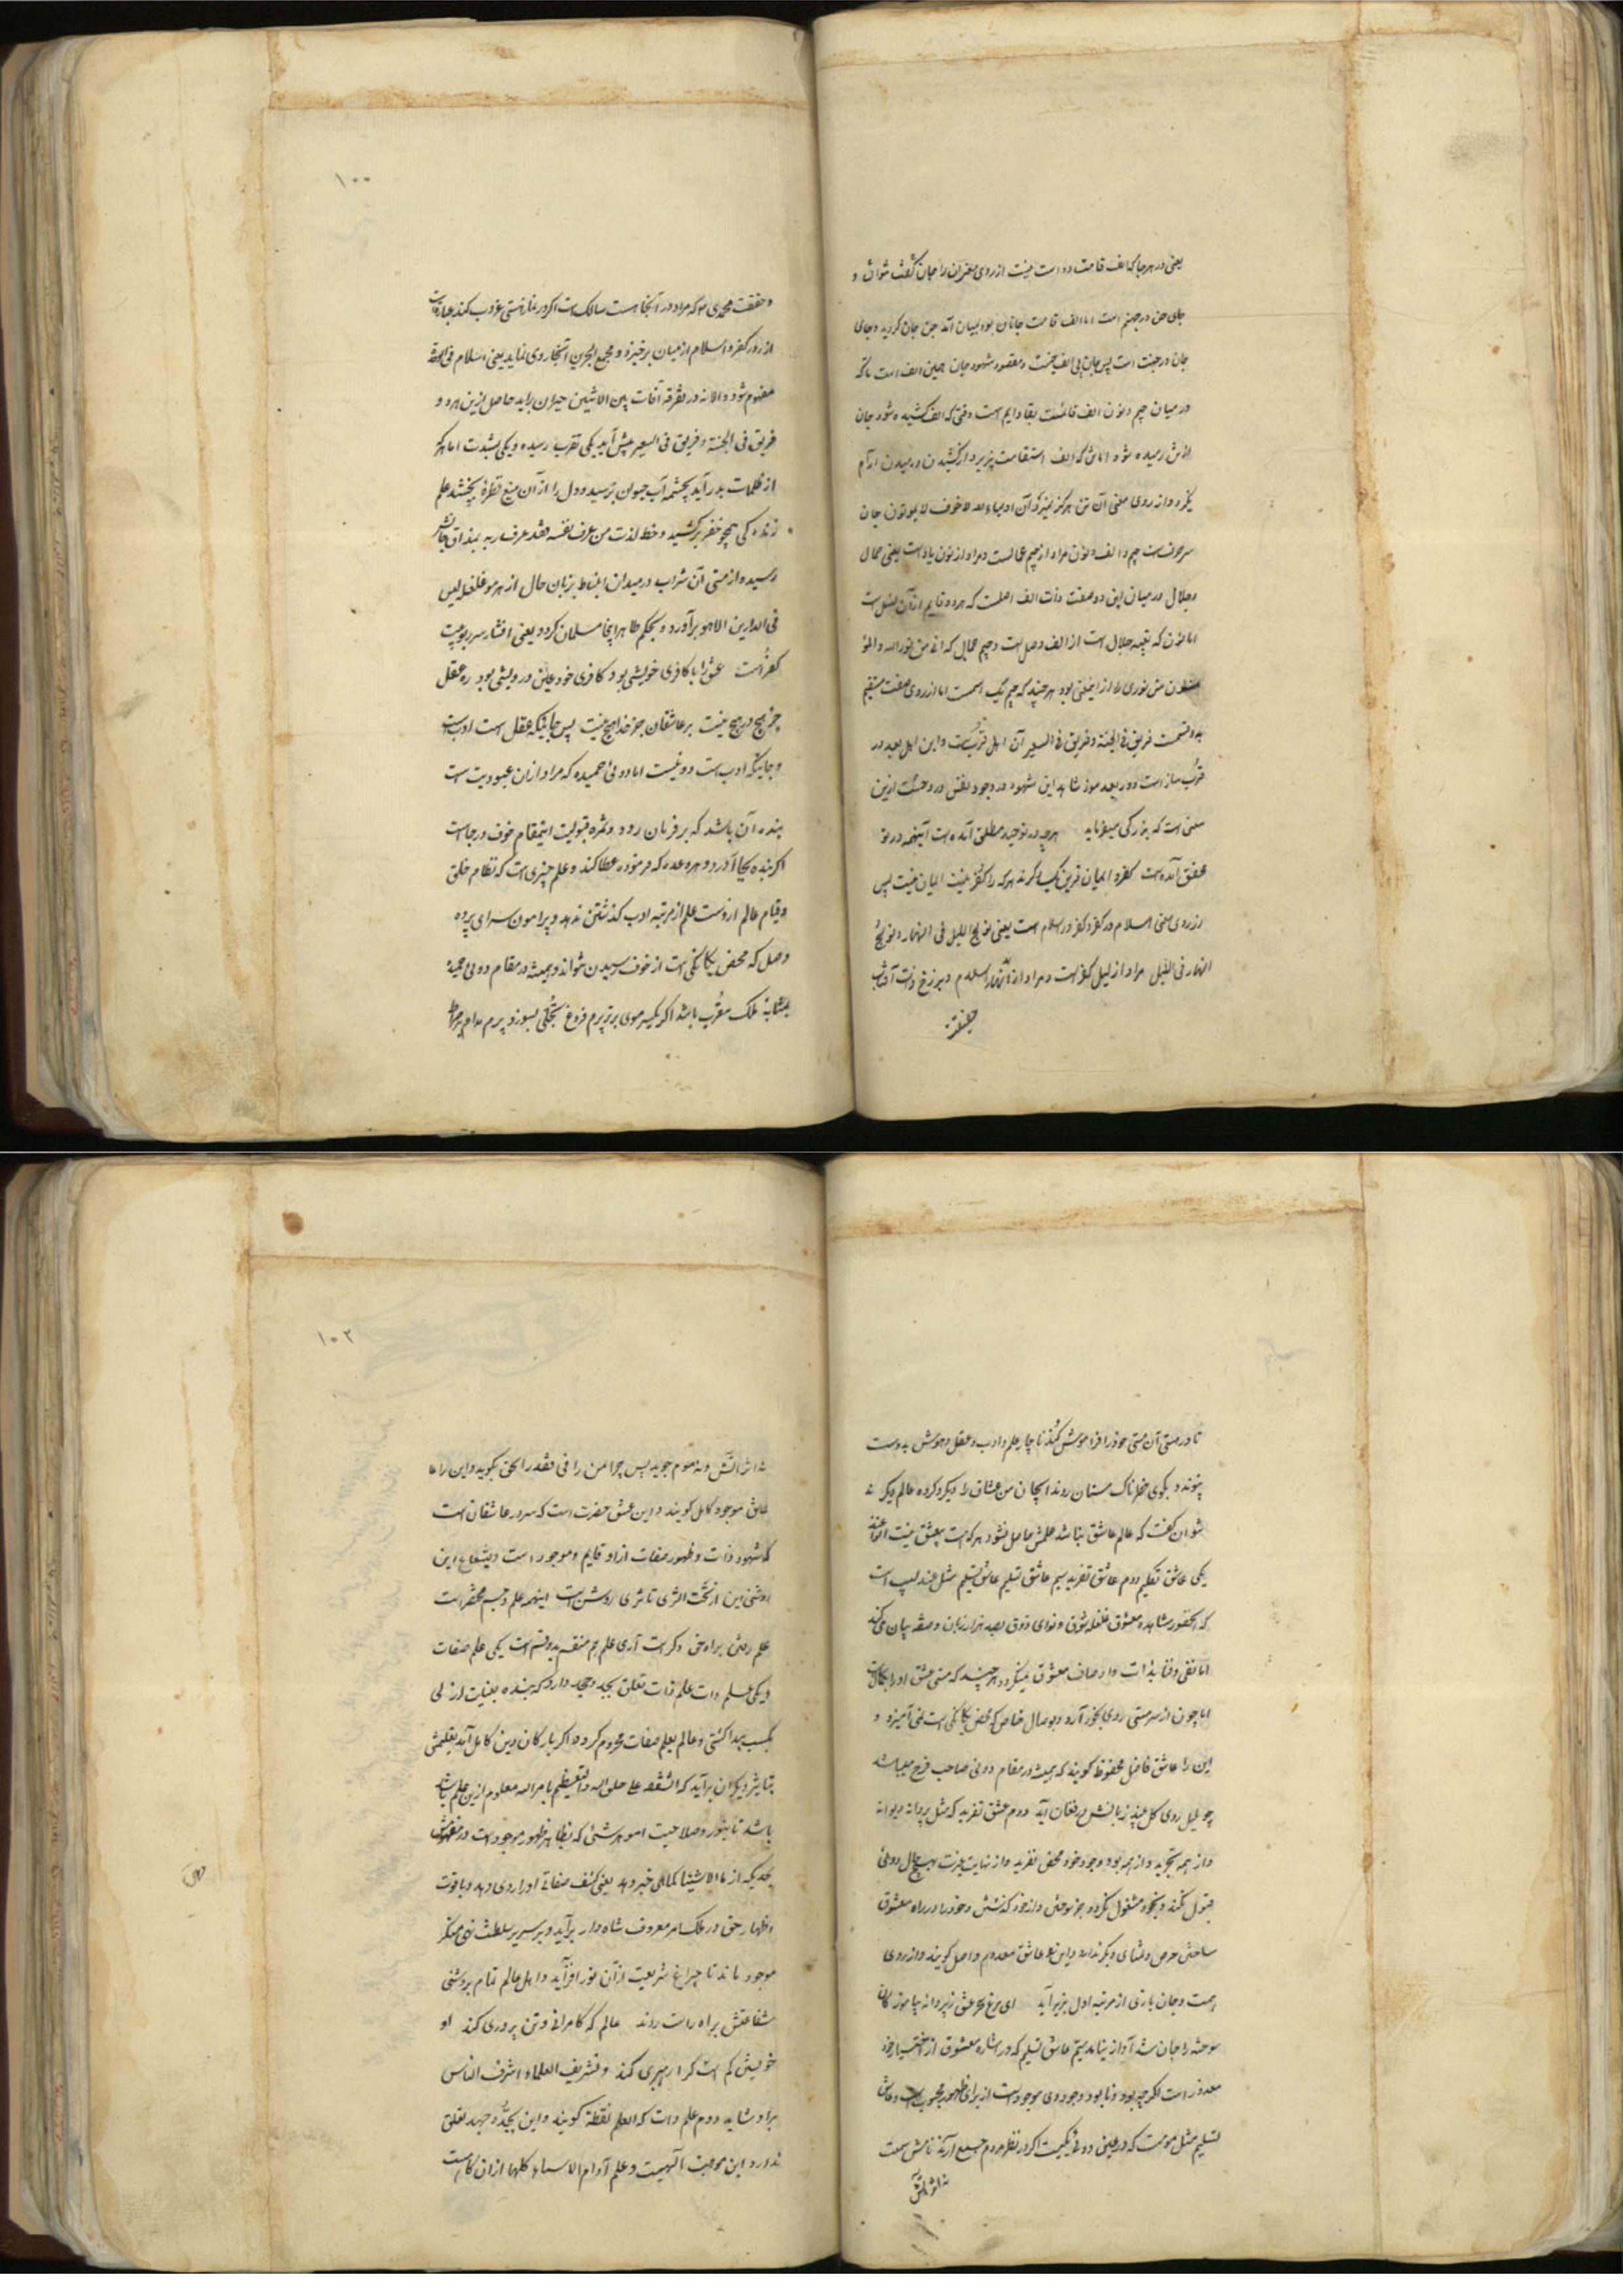 یعنی در هر جا که الف قامت دوست نیست از روی معنی آن را جان گفت نتوان و
جای جن در جهنم است اما الف قامت جانان بود بمیان آمد جن جان گردید و جای
جان در جنت است پس جان بی الف و مقصود شهود جان همین الف است تا که
در میان جیم و نون الف قائمست بقا دایم است وقتی که الف کشیده شود جان
از تن رمیده شود اما تن که الف استقامت پذیرد از کشیدن و رمیدن آرام
گیرد و از روی معنی آن تن هرگز نمیرد آن اولیاء الله لا خوف لا یموتون جان
سه حرفست جیم و الف و نون مراد از جیم جمالست و مراد از نون یعنی جمال
و جلال در میان این دو صفت ذات الف اصلست که هر دو قایم از آن اصل است
اما نون که بقیه جلال است از الف وصل است و جیم جمال که انا من نور الله و المؤ
منون من نوری از اینمعنی بود هر چند که جیم یک اسمست اما از روی صفت منقسم
بدو قسمت فریق فی الجنة و فریق فی السعیر آن اهل قربست و این اهل بعد در
قرب ساز است و در بعد سوز شاهد این شهود در وجود نفس و روحست ازین
معنی است که بزرگی میفرماید هر چه در توحید مطلق آمده است اینهمه در تو
محقق آمده است کفر و ایمان قرین یکدیگرند هر که را کفر نیست ایمان نیست پس
از روی معنی اسلام در کفر و کفر در اسلام است یعنی تولج اللیل فی النهار و تولج
النهار فی اللیل مراد از لیل کفر است و مراد از نهار اسلام و برزخ ذات آفتاب
حقیقت
۱۰۰
و حقیقت محمدی هو که مراد در آنجا هست سالک است اگر در غار نیستی غروب کند
از روز کفر و اسلام از میان برخیزد و مجمع البحرین آنجا روی نماید یعنی اسلام فی الحقیقة
مفهوم شود و الا نه در تفرقه آفات بین الاثنین حیران برآید حاصل ازین هر دو
فریق فی الجنة و فریق فی السعیر پیش آید یکی تقرب رسیده و یکی ببعدت اما هر که
از ظلمات بدر آید بچشمه آب حیوان برسید و دل را از آن منبع قطرهٔ بچشید علم
زندگی همچو خضر برکشید و خط لذت من عرف نفسه فقد عرف ربه بمذاق جانش
رسید و از مستی آن شراب در میدان انبساط بزبان حال از هر مو غلغل لیس
فی الدارین الا هو برآورد و بحکم ظاهر اینجا مسلمان گردد یعنی افشاء سر ربوبیت
کفر است عشق را با کافری خویشی بود کافری خود عین درویشی بود ره عقل
جز پیچ در پیچ نیست بر عاشقان جز خدا هیچ نیست پس جائیکه عقل است ادبست
و جائیکه ادب است دوئیست اما دوئی حمیده که مراد از آن عبودیت است
بنده آن باشد که بر فرمان رود و ثمره قبولیت اینمقام خوف و رجاست
اگر بنده بجا آورد و هر وعده که فرموده عطا کند و علم چیزی است که نظام خلق
و قیام عالم ازوست علم از مرتبه ادب گذشتن ندهد و پیرامون سرای پرده
وصل که محض یگانگی است از خوف رسیدن نتواند و همیشه در مقام دوئی
بمثابه ملک مقرب باشد اگر یکسر موی برتر پرم فروغ تجلی بسوزد پرم
تا در مستی آن مستی خود را فراموش کند ناچار علم و ادب و عقل و هوش بدوست
پیوندد بکوی خطرناک مستان روند من عشاق را دیگر کرده عالم دیگر
نتوان گفت که عالم عاشق نباشد علمش حاصل نشود هر که است بیعشق نیست
یکی عاشق تکلیم دوم عاشق تفرید سیم عاشق تسلیم عاشق تسلیم مثل عندلیب است
که بحضور مشاهده معشوق غلغله شوق و نوای ذوق بصد هزار زبان وصف بیان می کند
اما نفی و فنا بذات و اوصاف معشوق نمیگردد هر چند که مستی عشق او را بکمالات
اما چون از سرمستی روی بخود آرد و بوصال خاص که محض یگانگی است نمی آمیزد و
این را عاشق فاضل محفوظ گویند که همیشه در مقام دوئی صاحب فرح میباشد
چو بلبل روی گل بیند زبانش در فغان آید دوم عشق تفرید که مثل پروانه دیوانه
و از همه تجرید و از همه بود وجود خود محض تفرید و از نهایت غیرت بهیچ حال دوئی
قبول نکند و بخود مشغول نگردد بجز سوختن و از خود گذشتن و خود را در راه معشوق
ساختن حرص و تمنای دیگر ندارد و این را عاشق معدوم واصل گویند و از روی
همت و جان بازی از مرتبه اول برتر آید ای مرغ سحر عشق ز پروانه بیاموز کان
سوخته را جان شد و آواز نیامد سیم عاشق تسلیم که در اشاره معشوق از اختیار خود
معذور است اگر چه بود و نابود وجود وی موجود است از برای ظهور محبوب است و عاشق
تسلیم مثل مومست که در عین دوئی یکیست اگر در نظر مردم شمع آرند نامش شمعست
نه از آتش
۱۰۲
نه از آتش و نه موم جوید پس چرا من رآنی فقد رای الحق نگوید و این را عا
عاشق موجود کامل گویند و این عشق حضرت است که سرور عاشقان است
که شهود ذات و ظهور صفات از او قایم و موجود است و بشعاع این
روشنی من از تحت الثری تا ثری روشن است اینهمه علم و جسم محضر است
علم رفتن براه حق دگر است آری علم هم منقسم بدو قسم است یکی علم صفات
و یکی علم ذات علم ذات تعلق بجد و جهد دارد که بنده بعنایت ازلی
بکسب پیدا کنی و عالم بعلم صفات محروم گردد اگر بارکان دین کامل آید بعلمش
بتاثیر دیگران برآید که الشفقه علی خلق الله و التعظیم بامر الله معلوم ازین علم باید
باشد تا بنور و صلاحیت امور هر شئی که بظاهر ظهور موجود است در
بحدیکه از ما الاشیا کماهی خبر دهد یعنی کشف صفات او را روی دهد و با قوت
اظهار حق در ملک امر معروف شاه وار برآید و بر سریر سلطنت نهی منکر
موجود ماند تا چراغ شریعت از آن نور افزاید و اهل عالم تمام بروشنی
شفاعتش براه راست روند عالم که کامرانی و تن پروری کند او
خویشتن گم است کرا رهبری کند و تشریف العلماء اشرف الناس
برو شاید دوم علم ذات که العلم نقطة گویند و این بجد و جهد تعلق
ندارد این موهبت الهیست و علم آدم الاسماء کلها از آن